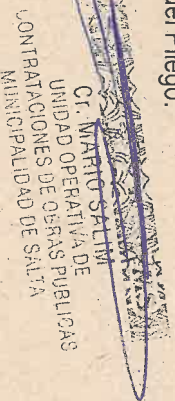 del Pliego.
Cr. MARIO SALIM
UNIDAD OPERATIVA DE
CONTRATACIONES DE OBRAS PUBLICAS
MUNICIPALIDAD DE SALTA